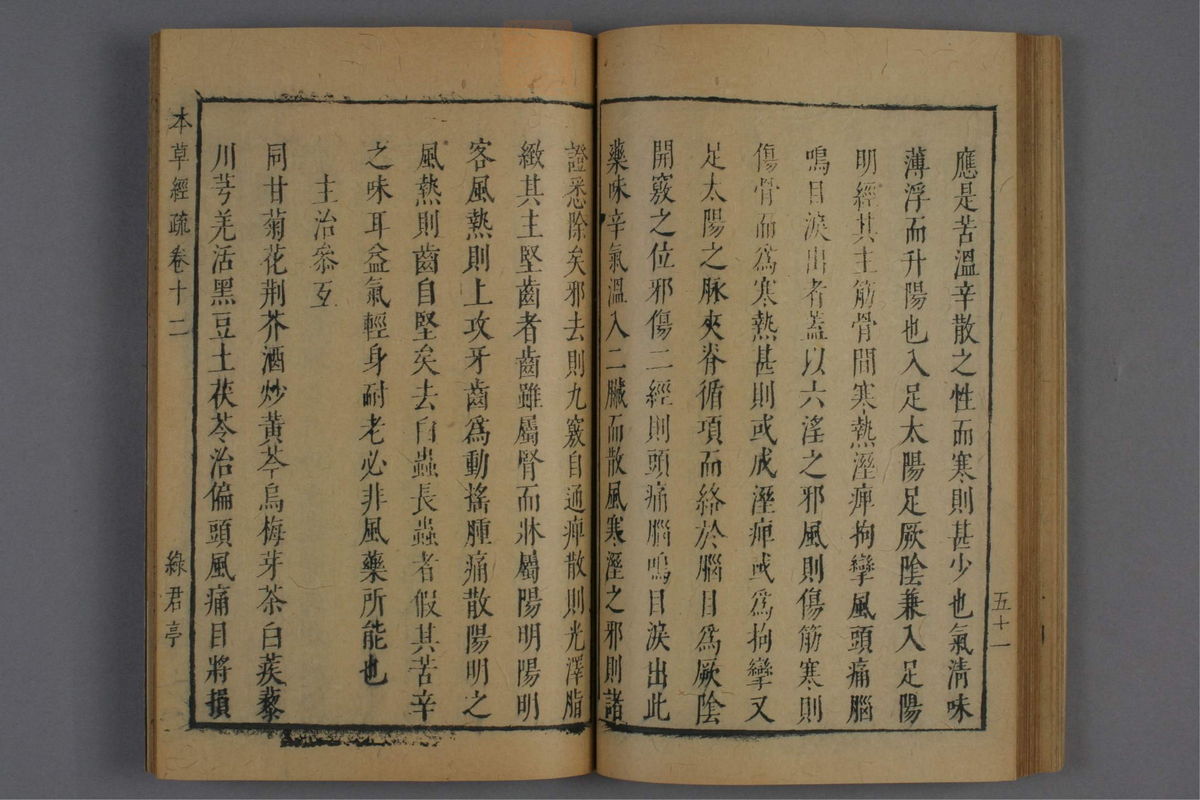 應是苦溫辛散之性而寒則甚少也氣清味
薄浮而升陽也入足太陽足厥陰兼入足陽
明經其主筋骨間寒熱溼痺拘攣風頭痛腦
鳴目淚出者蓋以六淫之邪風則傷筋寒則
傷骨而爲寒熱甚則或成溼痺或爲拘攣又
足太陽之脉夾脊循項而絡於腦目爲厥陰
開竅之位邪傷二經則頭痛腦鳴目淚出此
藥味辛氣溫入二臟而散風寒溼之邪則諸
證悉除矣邪去則九竅自通痺散則光澤脂
緻其主堅齒者齒雖屬腎而牀屬陽明陽明
客風熱則上攻牙齒爲動搖腫痛散陽明之
風熱則齒自堅矣去白蟲長蟲者假其苦辛
之味耳益氣輕身耐老必非風藥所能也
主治叅互
同甘菊花荆芥酒炒黃芩烏梅芽茶白蒺藜
川芎羌活黑豆土茯苓治偏頭風痛目將損
本草經疏卷十二
綠君亭
五十一